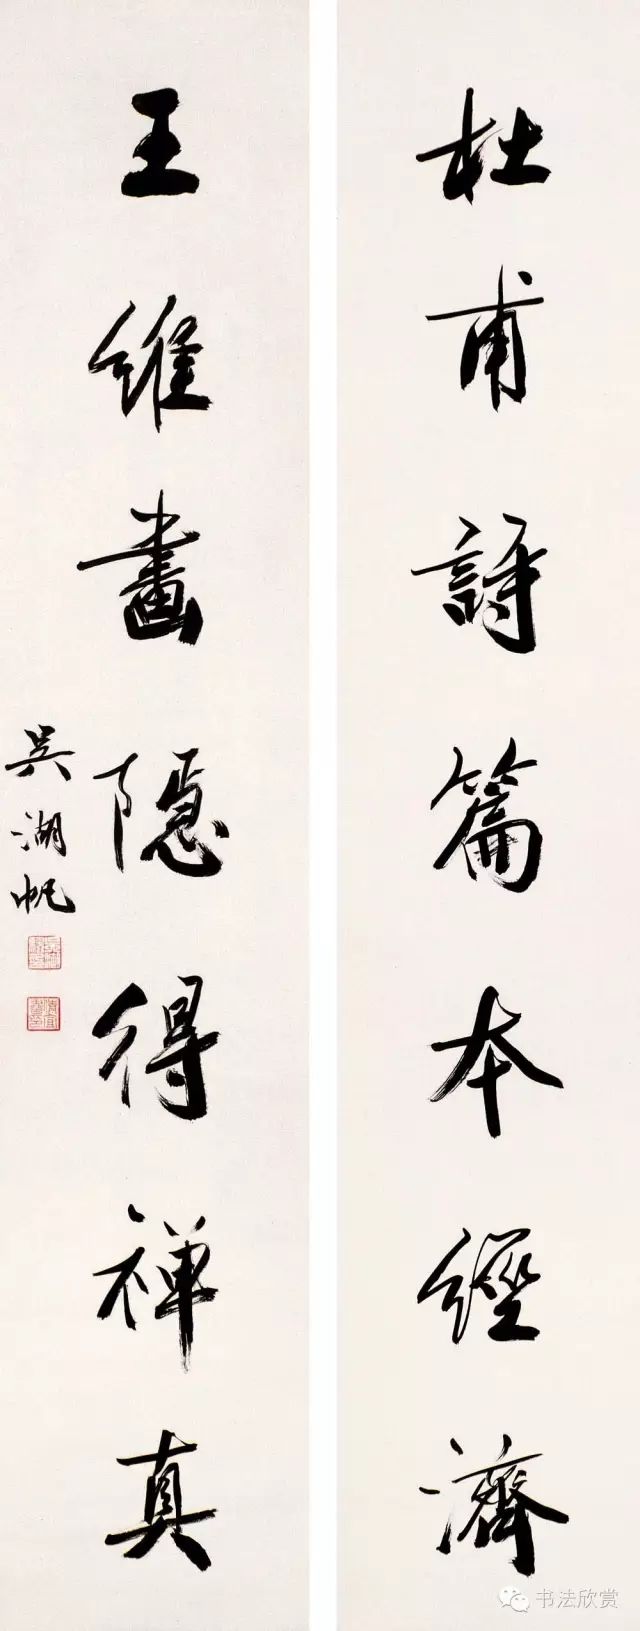 杜甫詩篇本經濟
王維畫隱得禅真
吴湖帆
书法欣赏